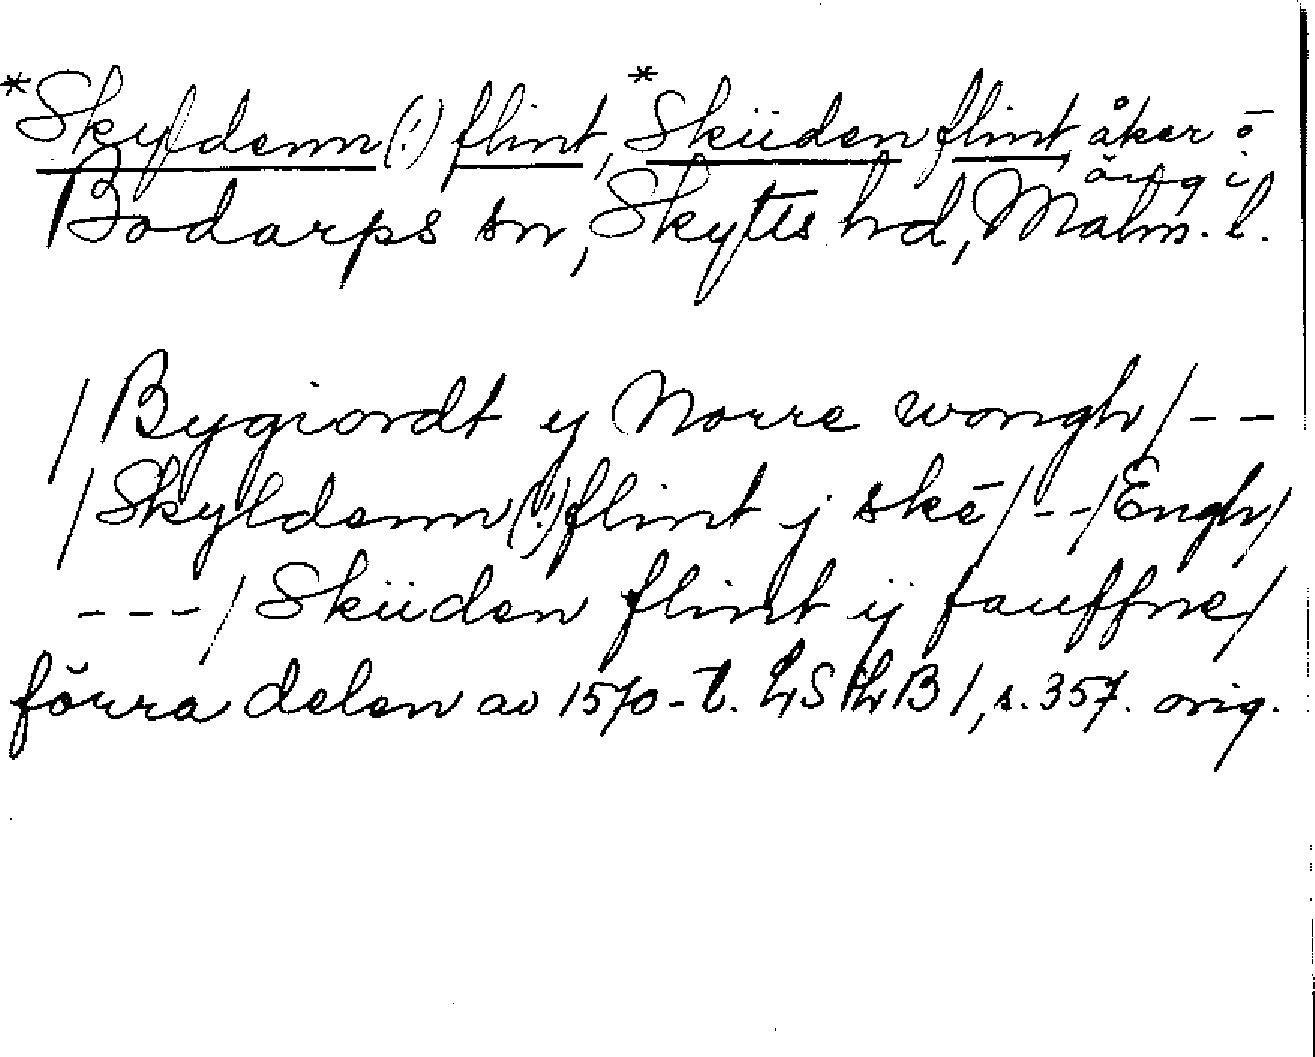 *Skyldenn(!) flint, *Sküden flint, åker o
äng i
Bodarps sn, Skytts hd, Malm. l.
/Bygiordt y Norre wongh/--
/Skyldenn(!) flint j ske/--/Engh/
---/Sküden flint ij fauffne/
förra delen av 1570-t. LSLB 1, s. 357. orig.